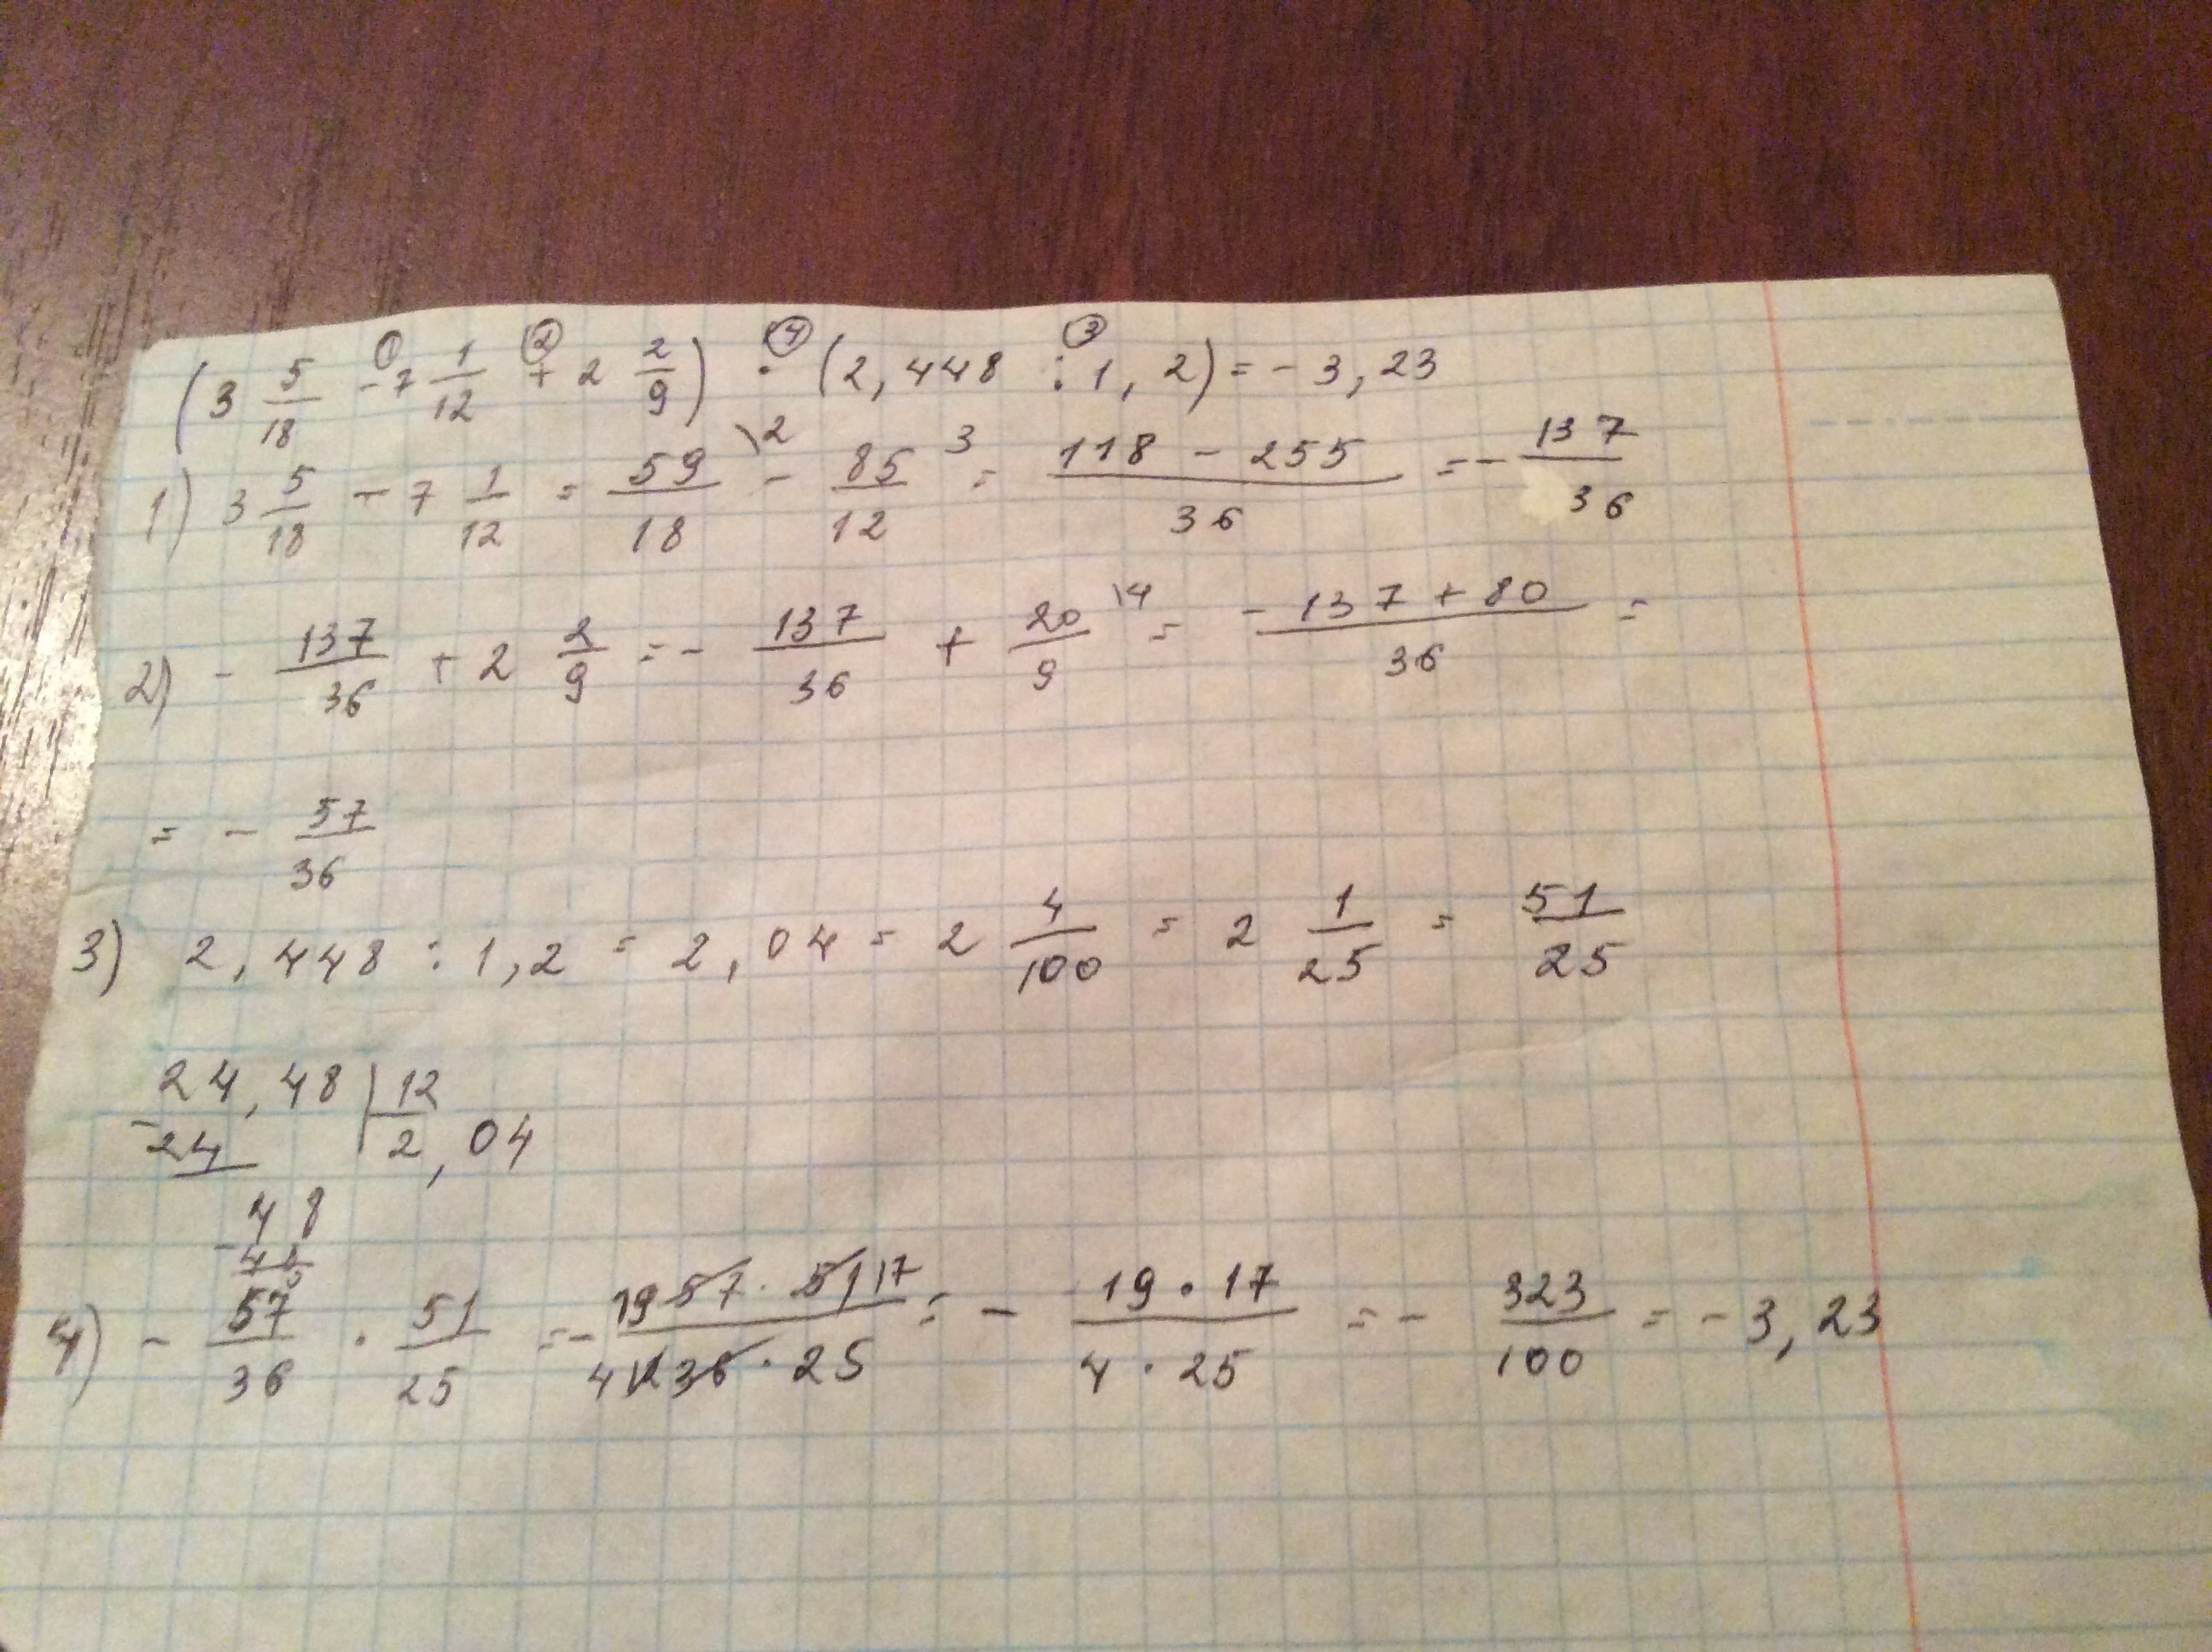 ① ② ④ ③
(3 5/18 - 7 1/12 + 2 2/9) · (2,448 : 1,2) = - 3,23
1) 3 5/18 - 7 1/12 = 59/18 \2 - 85/12 3 = (118 - 255)/36 = - 137/36
2) - 137/36 + 2 2/9 = - 137/36 + 20/9 \4 = (- 137 + 80)/36 =
= - 57/36
3) 2,448 : 1,2 = 2,04 = 2 4/100 = 2 1/25 = 51/25
24,48 | 12
- 24 | 2,04
48
- 48
4) - 57/36 · 51/25 = - (19 57 · 51 17)/(4 12 36 · 25) = - (19 · 17)/(4 · 25) = - 323/100 = - 3,23